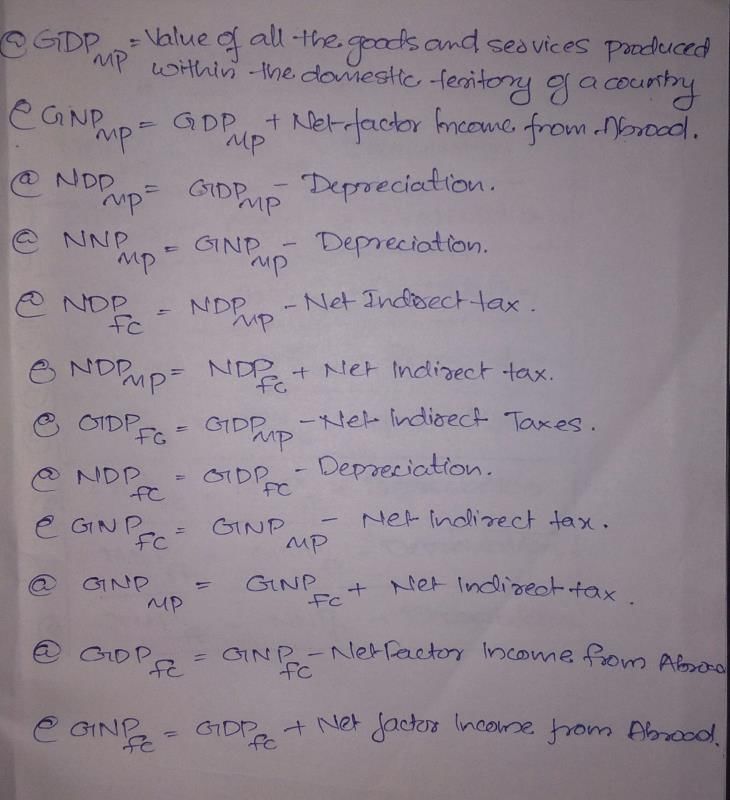 @ GDP MP = Value of all the goods and services produced
within the domestic territory of a country
@ GNP MP = GDP MP + Net factor Income from Abroad.
@ NDP MP = GDP MP - Depreciation.
@ NNP MP = GNP MP - Depreciation.
@ NDP FC = NDP MP - Net Indirect tax.
@ NDP MP = NDP FC + Net Indirect tax.
@ GDP FC = GDP MP - Net Indirect Taxes.
@ NDP FC = GDP FC - Depreciation.
@ GNP FC = GNP MP - Net Indirect tax.
@ GNP MP = GNP FC + Net Indirect tax.
@ GDP FC = GNP FC - Net Factor Income from Abroad
@ GNP FC = GDP FC + Net factor Income from Abroad.